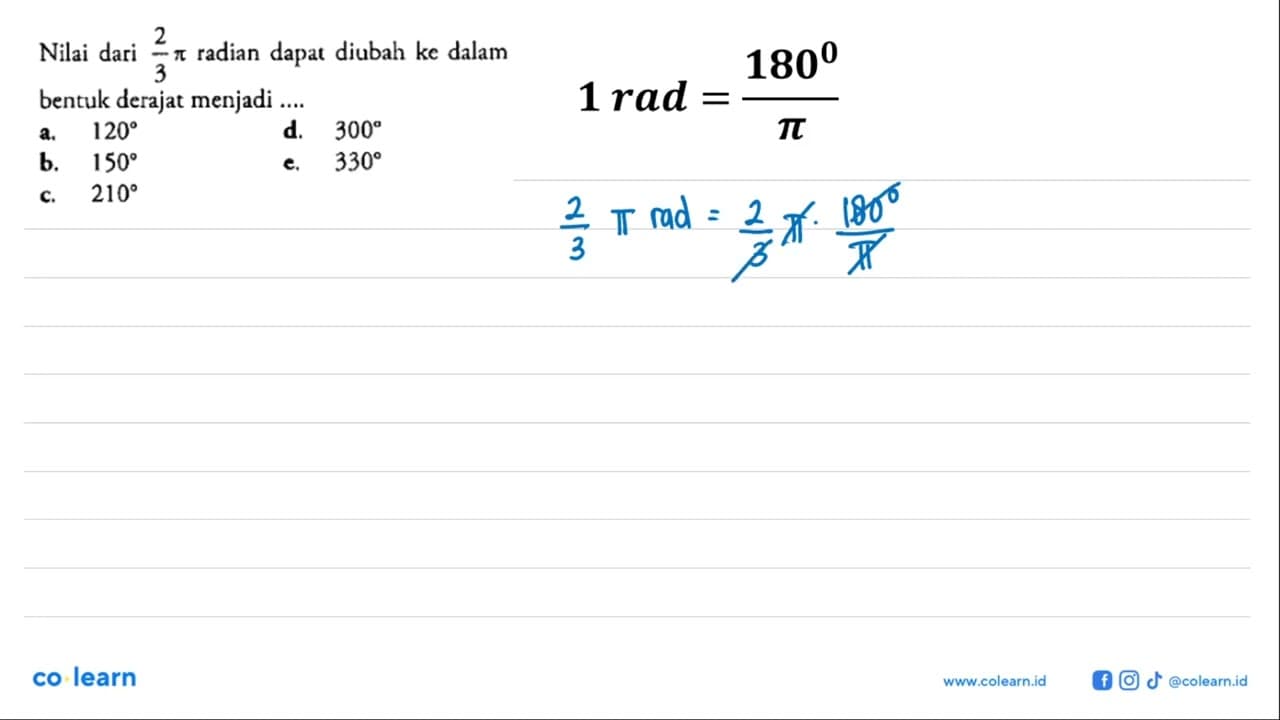 Nilai dari 2/3 π radian dapat diubah ke dalam
bentuk derajat menjadi ....
a. 120° d. 300°
b. 150° e. 330°
c. 210°
1 rad = 180⁰/π
2/3 π rad = 2/3 π · 180⁰/π
co learn
www.colearn.id
@colearn.id